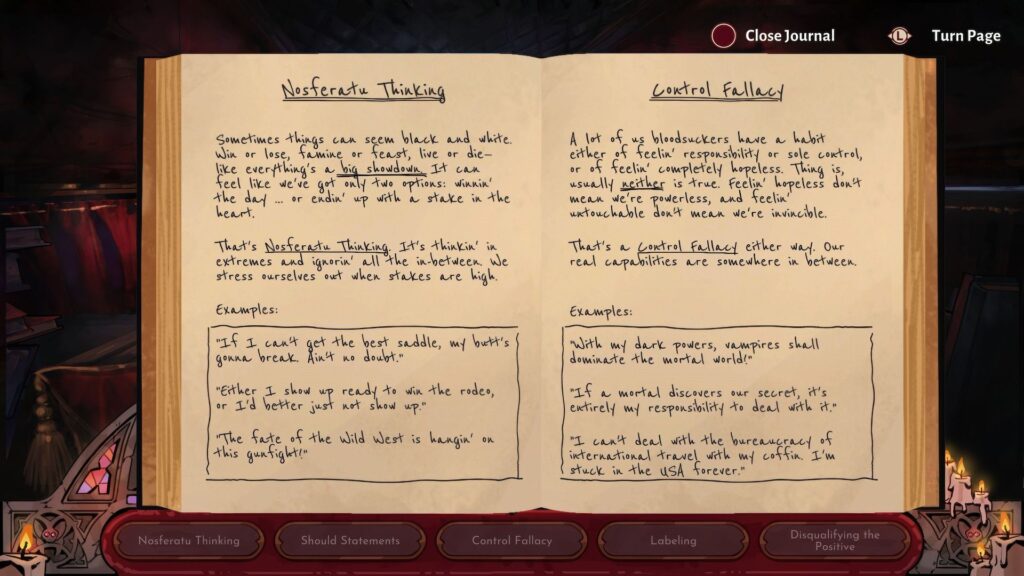 Close Journal
L
Turn Page
Nosferatu Thinking
Sometimes things can seem black and white.
Win or lose, famine or feast, live or die—
like everything's a big showdown. It can
feel like we've got only two options: winnin'
the day ... or endin' up with a stake in the
heart.
That's Nosferatu Thinking. It's thinkin' in
extremes and ignorin' all the in-between. We
stress ourselves out when stakes are high.
Examples:
"If I can't get the best saddle, my butt's
gonna break. Ain't no doubt."
"Either I show up ready to win the rodeo,
or I'd better just not show up."
"The fate of the Wild West is hangin' on
this gunfight!"
Control Fallacy
A lot of us bloodsuckers have a habit
either of feelin' responsibility or sole control,
or of feelin' completely hopeless. Thing is,
usually neither is true. Feelin' hopeless don't
mean we're powerless, and feelin'
untouchable don't mean we're invincible.
That's a Control Fallacy either way. Our
real capabilities are somewhere in between.
Examples:
"With my dark powers, vampires shall
dominate the mortal world!"
"If a mortal discovers our secret, it's
entirely my responsibility to deal with it."
"I can't deal with the bureaucracy of
international travel with my coffin. I'm
stuck in the USA forever."
Nosferatu Thinking
Should Statements
Control Fallacy
Labeling
Disqualifying the
Positive